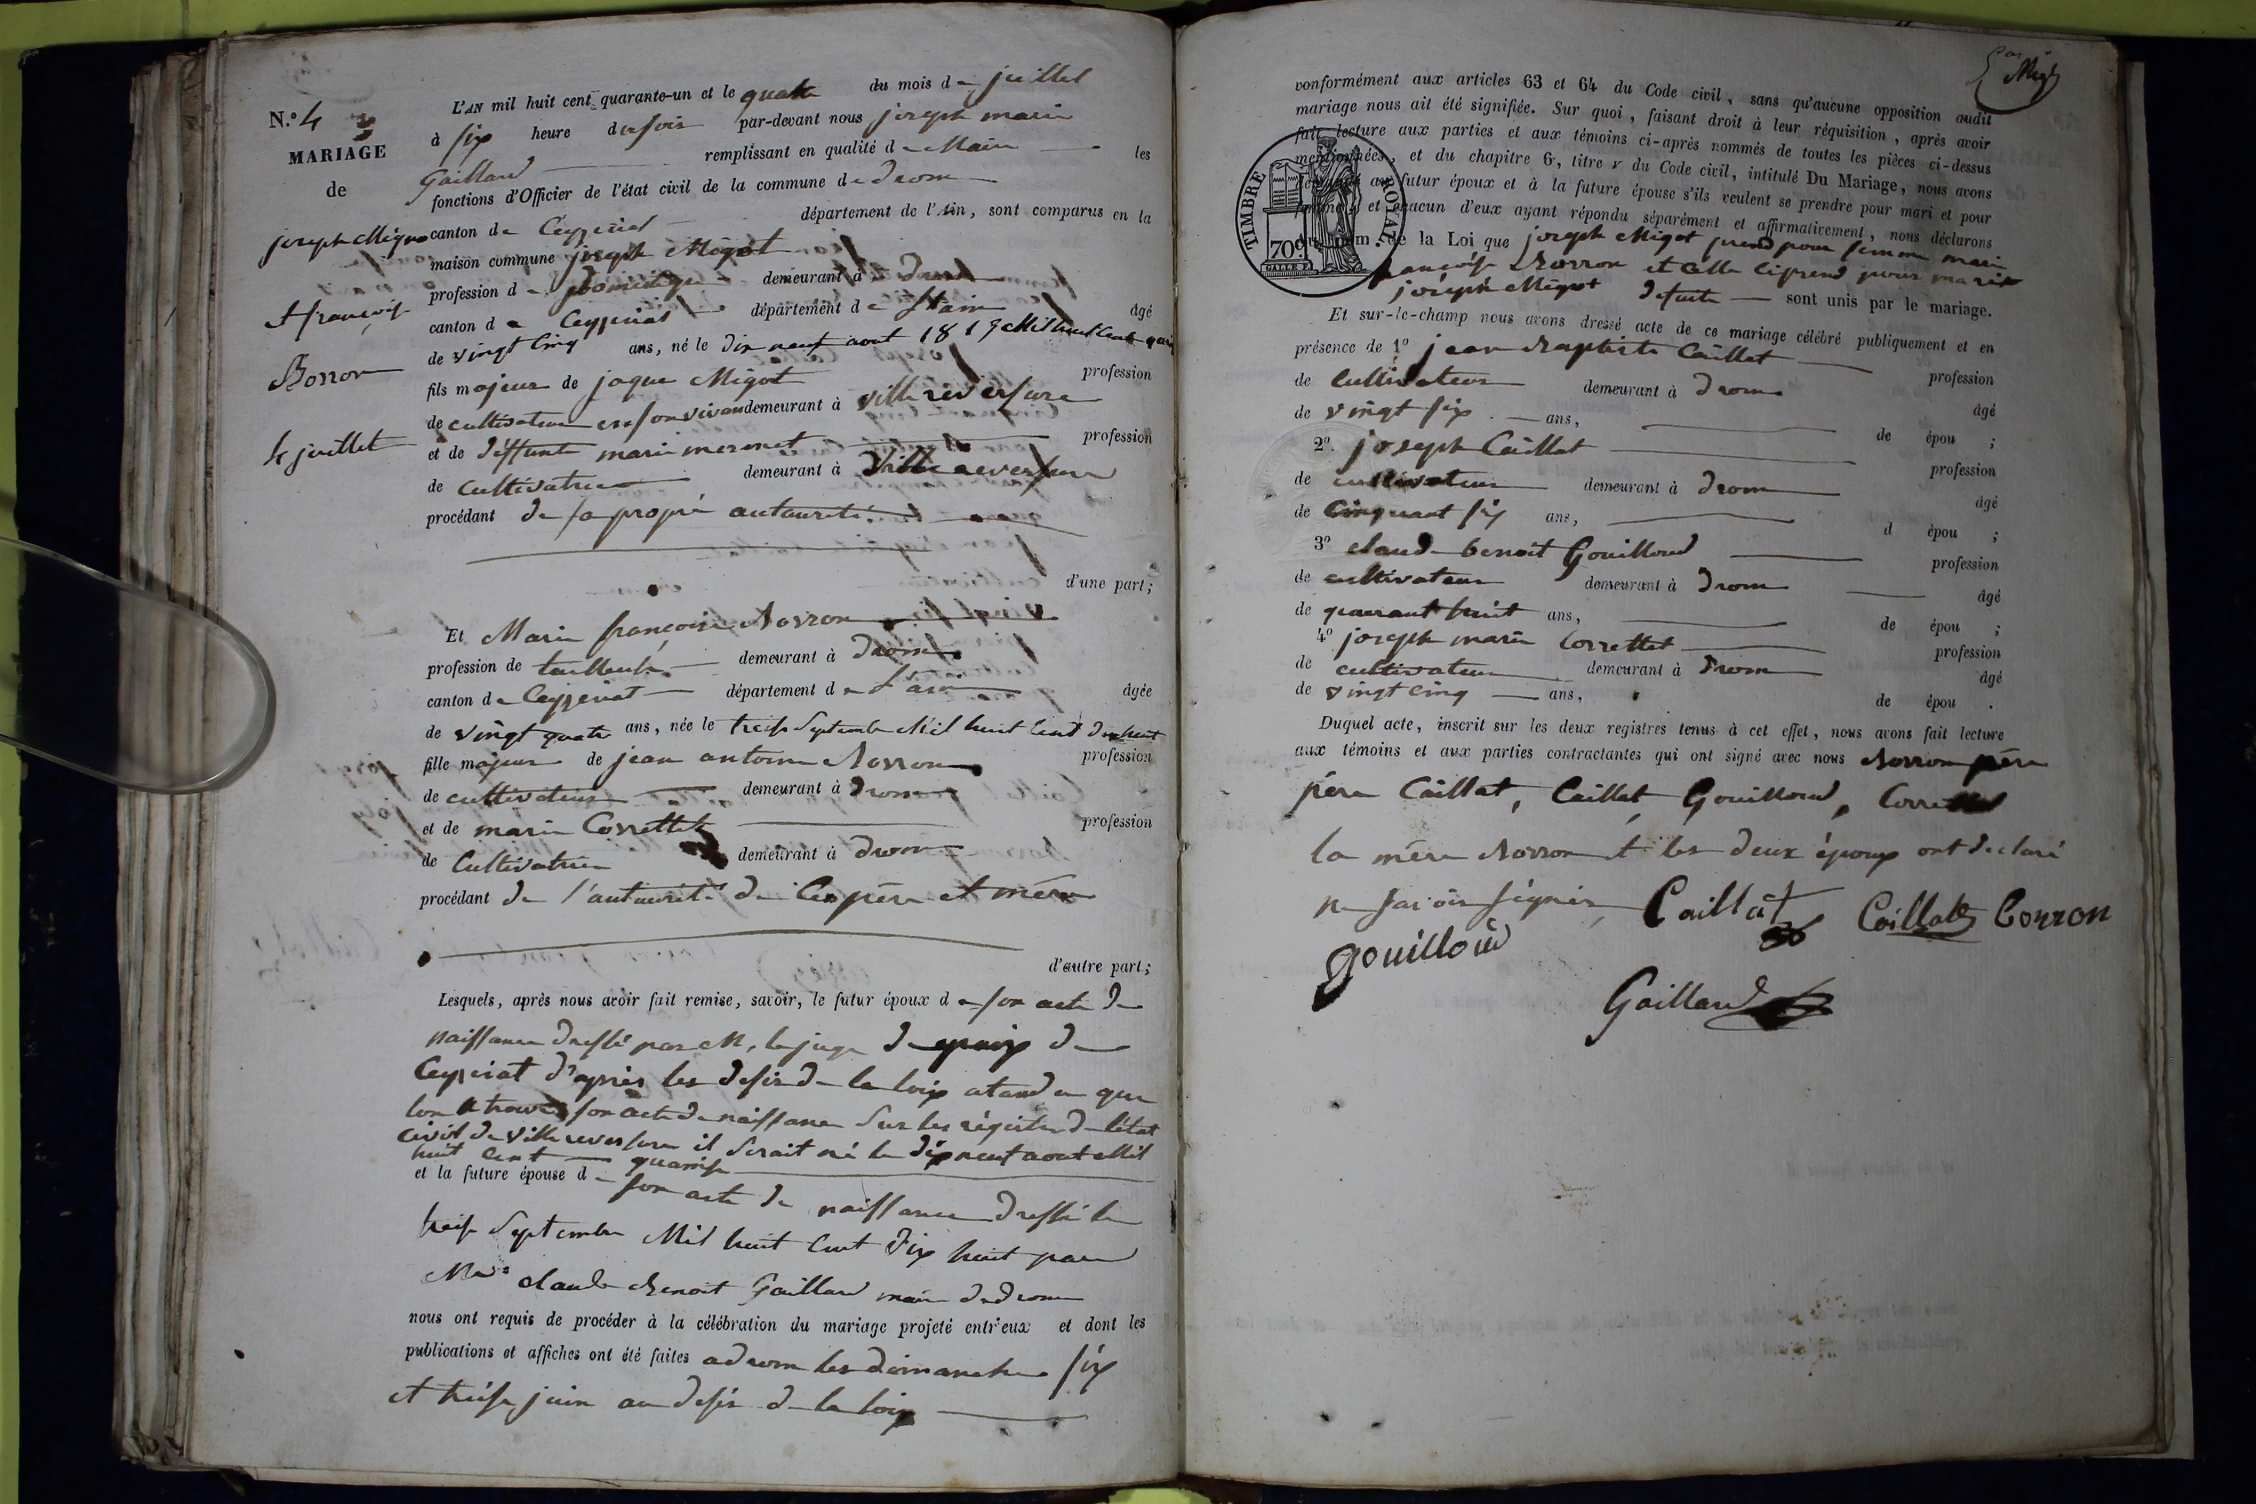 N.º 4
MARIAGE
de
joseph Migot
et françoise
Borron
4 juillet
L'AN mil huit cent quarante-un et le quatre du mois de juillet
à six heure du soir par-devant nous joseph marie
Gaillard remplissant en qualité de Maire les
fonctions d'Officier de l'état civil de la commune de drom
canton de Ceyzeriat département de l'Ain, sont comparus en la
maison commune joseph Migot
profession de domestique demeurant à drom
canton de Ceyzeriat département de l'ain âgé
de vingt cinq ans, né le dix neuf aout
fils majeur de joque Migot profession
de cultivateur en son vivan demeurant à villereversure
et de deffunte marie profession
de cultivatrice demeurant à villereversure
procédant de sa propre autaurité
d'une part;
Et Marie françoise Borron
profession de demeurant à drom
canton de Ceyzeriat département de l'ain âgée
de vingt quatre ans, née le treise Septembre Mil huit Cent dix huit
fille majeur de jean antoine Borron profession
de cultivateur demeurant à drom
et de marie Correttet profession
de Cultivatrice demeurant à drom
procédant de l'autaurité de Ces père et mère
d'autre part;
Lesquels, après nous avoir fait remise, savoir, le futur époux de son acte de
naissance dressé par M. le juge de paix de
Ceyzeriat d'après les desir de la loix atandu que
lon trouve son acte de naissance Sur les régistre de l'état
civil de villereversure il Serait né le dix neuf aout Mil
huit cent quinse
et la future épouse de son acte de naissance dressé le
treise Septembre Mil huit Cent dix huit par
claude Benoit Gaillard maire de drom
nous ont requis de procéder à la célébration du mariage projeté entr'eux et dont les
publications et affiches ont été faites a drom les dimanche six
et treise juin au desir de la loix
conformément aux articles 63 et 64 du Code civil, sans qu'aucune opposition audit
mariage nous ait été signifiée. Sur quoi, faisant droit à leur réquisition, après avoir
fait lecture aux parties et aux témoins ci-après nommés de toutes les pièces ci-dessus
mentionnées, et du chapitre 6, titre v du Code civil, intitulé Du Mariage, nous avons
demandé au futur époux et à la future épouse s'ils veulent se prendre pour mari et pour
femme; et chacun d'eux ayant répondu séparément et affirmativement, nous déclarons
au nom de la Loi que joseph Migot prend pour femme marie
françoise Borron et Celle Ciprend pour marie
joseph Migot de suite sont unis par le mariage.
TIMBRE ROYAL
70c.
Et sur-le-champ nous avons dressé acte de ce mariage célébré publiquement et en
présence de 1º jean Baptiste Caillat profession
de Cultivateur demeurant à drom âgé
de vingt six ans, de épou ;
2º. joseph Caillat profession
de cultivateur demeurant à drom âgé
de Cinquant six ans, d épou ;
3º claude benoit Gouilloud profession
de cultivateur demeurant à drom âgé
de quarant huit ans, de épou ;
4º joseph marie Correttet profession
de cultivateur demeurant à drom âgé
de vingt cinq ans, de épou .
Duquel acte, inscrit sur les deux registres tenus à cet effet, nous avons fait lecture
aux témoins et aux parties contractantes qui ont signé avec nous Borron père
père Caillat, Caillat Gouilloud, Correttet
la mère Borron et les deux époux ont declaré
ne savoir signer Caillat Caillat Borron
gouilloud
Gaillard